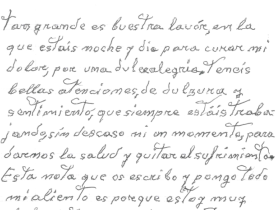 tan grande es buestra lavór, en la
que estáis noche y dia, para curar mi
dolor, por una dulcealegria, teneis
bellas atenciones, de dulzura y
sentimiento, que siempre estáis traba-
jando, sin descaso ni un momento, para
darnos la salud y quitar el sufrimiento.
Esta nota que os escribo y pongo todo
mi aliento es porque estoy muy